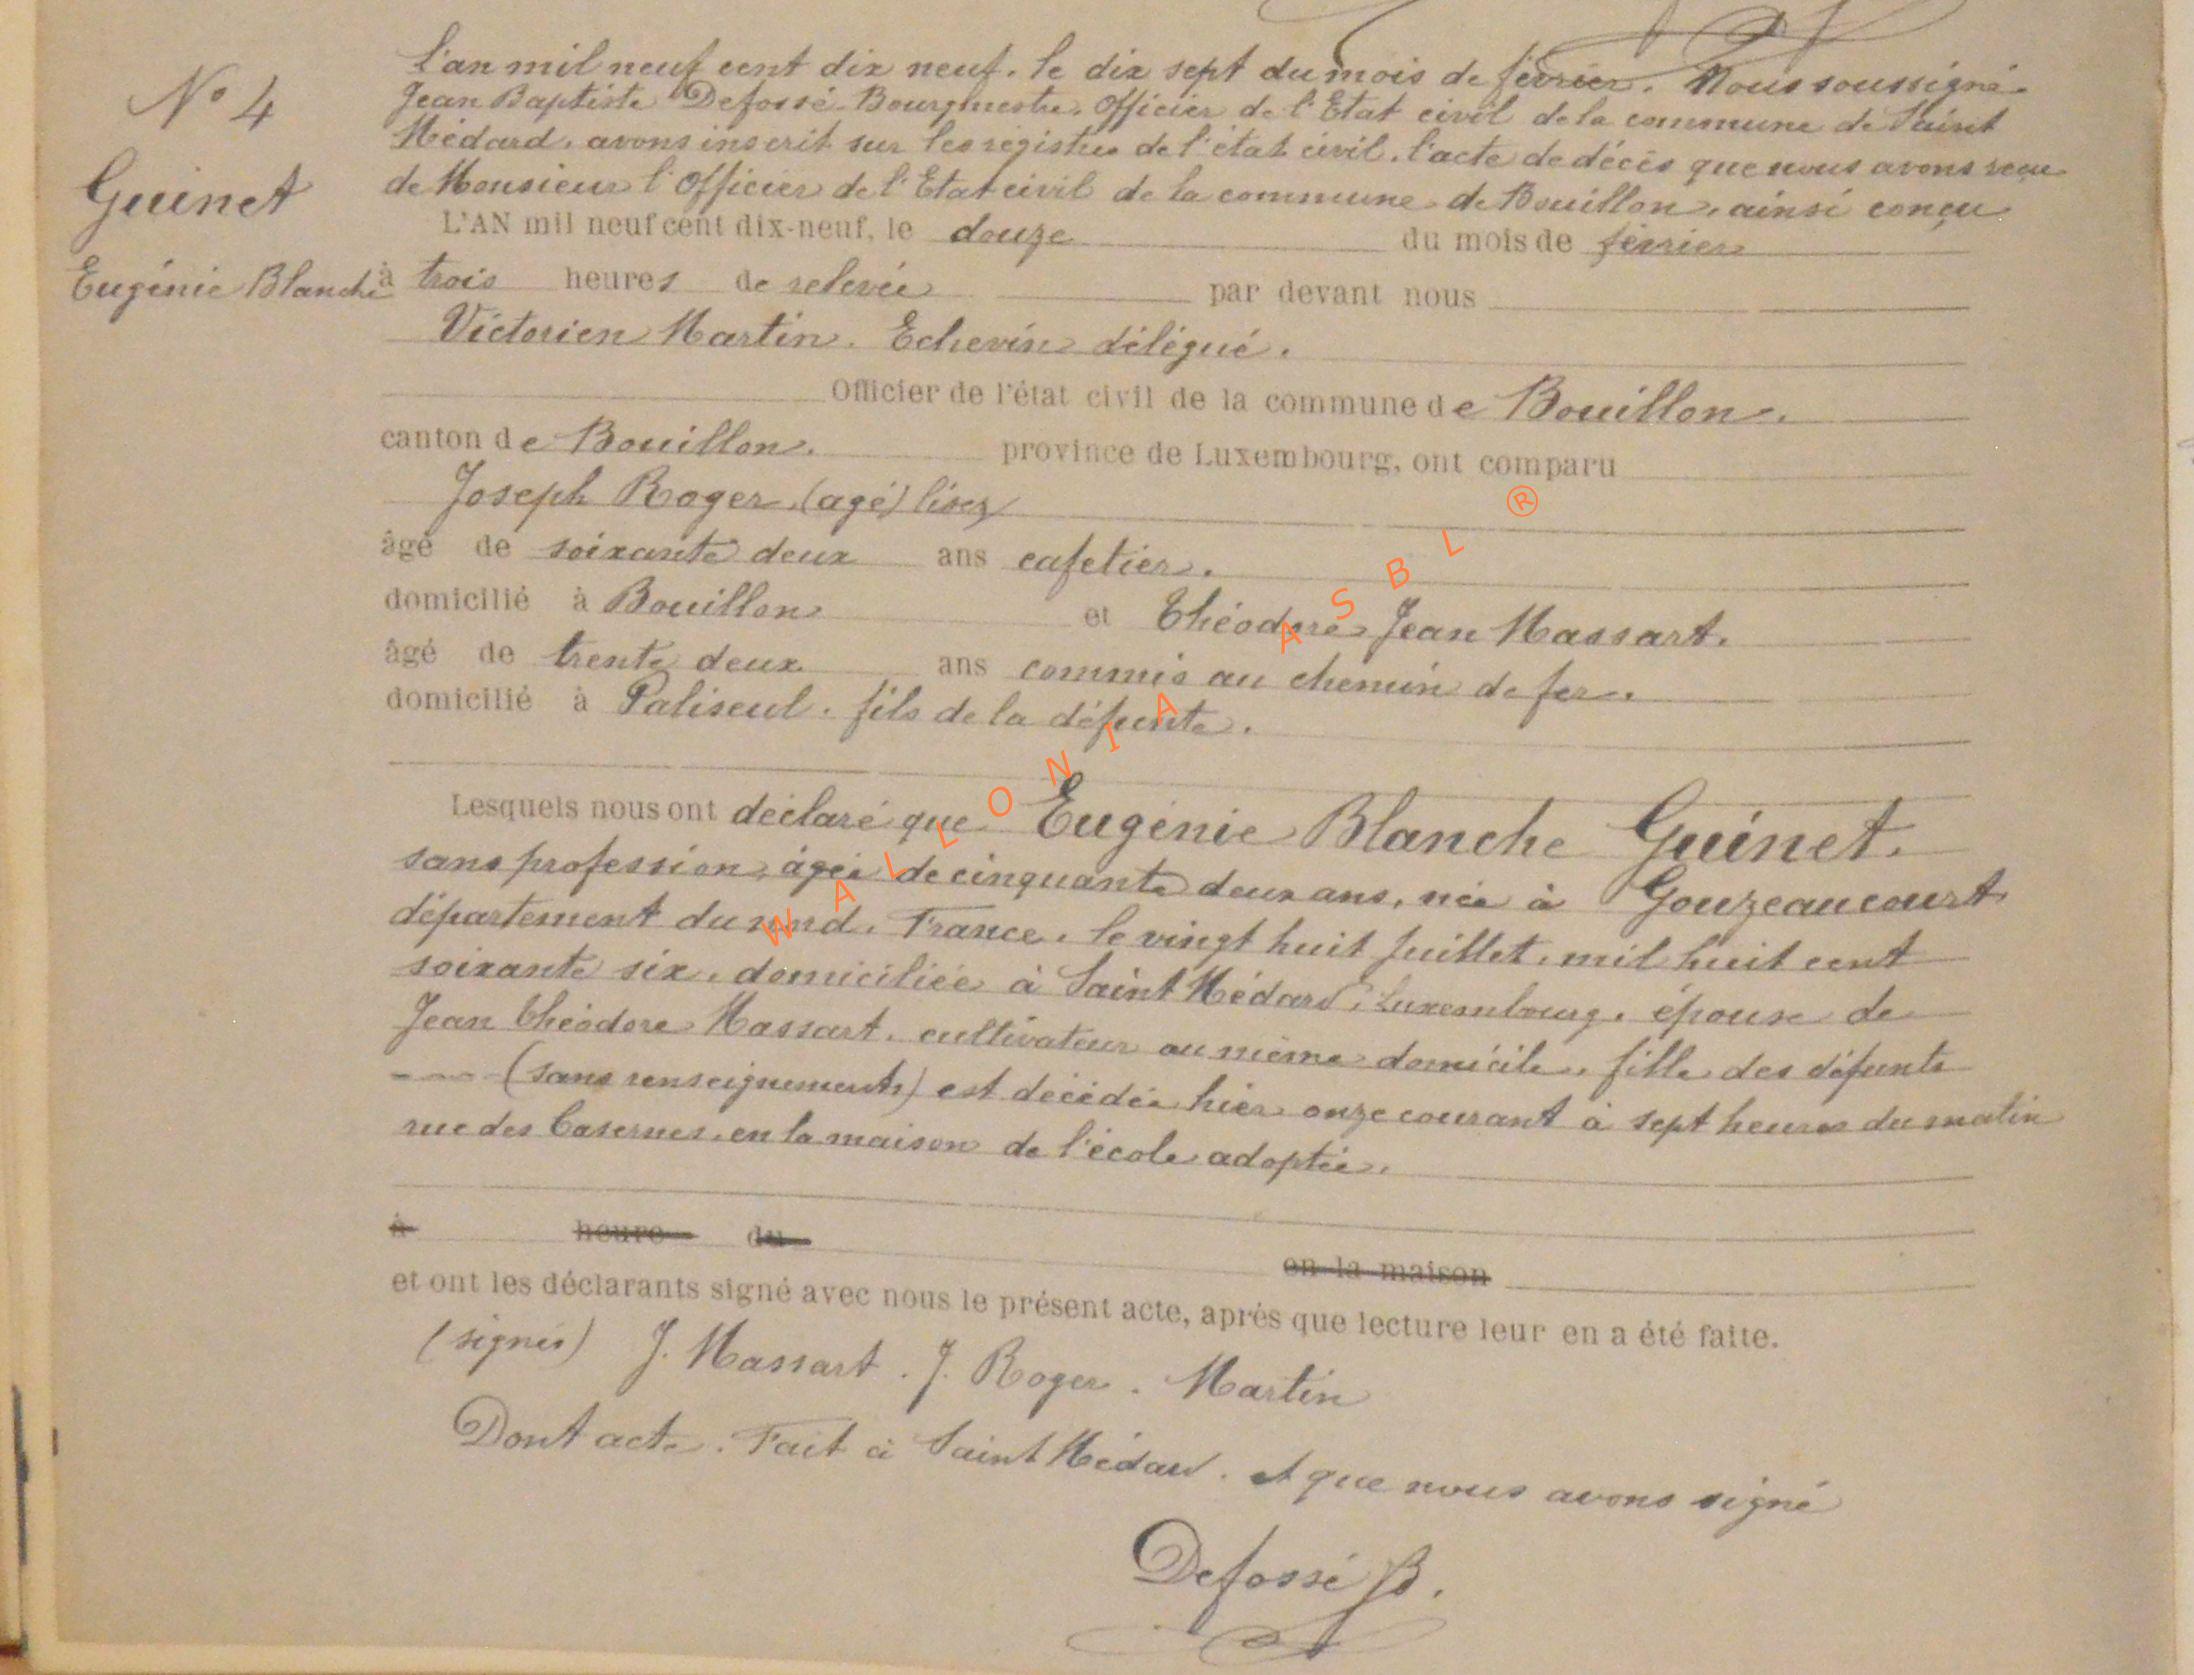 N° 4
Guinet
Eugénie Blanche
L'an mil neuf cent dix neuf, le dix sept du mois de février. Nous soussigné
Jean Baptiste Defossé Bourgmestre, Officier de l'Etat civil de la commune de Saint
Médard, avons inscrit sur les registres de l'état civil, l'acte de décès que nous avons reçu
de Monsieur l'Officier de l'Etat civil de la commune de Bouillon, ainsi conçu
L'AN mil neuf cent dix-neuf, le douze du mois de février
à trois heures de relevée par devant nous
Victorien Martin. Echevin délégué.
Officier de l'état civil de la commune de Bouillon.
canton de Bouillon. province de Luxembourg, ont comparu
Joseph Roger, (agé) lisez
âgé de soixante deux ans cafetier.
domicilié à Bouillon et Théodore Jean Massart.
âgé de trente deux ans commis au chemin de fer.
domicilié à Paliseul. fils de la défunte.
Lesquels nous ont déclaré que Eugénie Blanche Guinet.
sans profession, âgée de cinquante deux ans, née à Gouzeaucourt
département du nord. France. le vingt huit juillet, mil huit cent
soixante six, domiciliée à Saint Médard, Luxembourg. épouse de
Jean Théodore Massart. cultivateur au même domicile. fille des défunts
(sans renseignements) est décédée hier onze courant à sept heures du matin
rue des Casernes, en la maison de l'école adoptée.
à heure du en la maison
et ont les déclarants signé avec nous le présent acte, après que lecture leur en a été faite.
(signés) J. Massart. J. Roger. Martin
Dont acte. Fait à Saint Médard. et que nous avons signé
Defossé JB.
WALLONIA ASBL ®